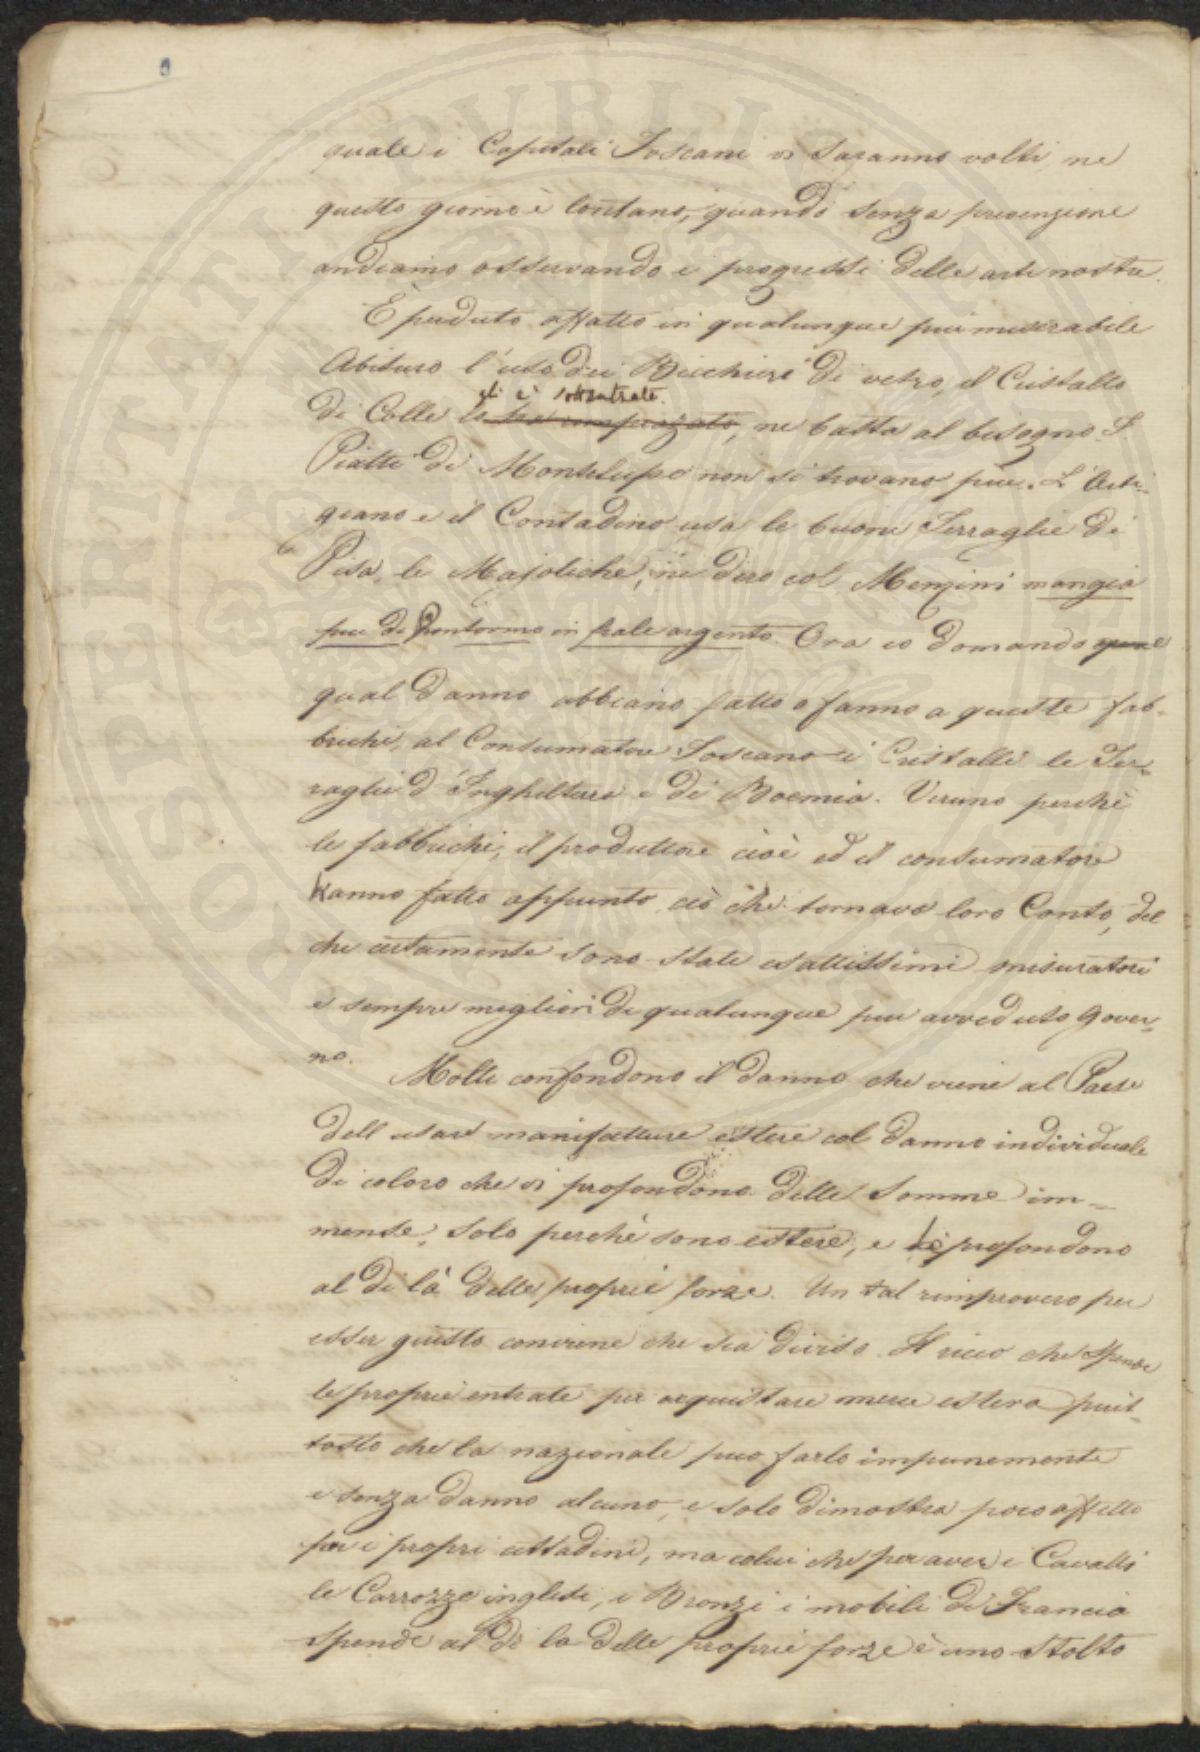 quale i Capitali Toscani vi saranno volti, ne
questo giorno è lontano, quando senza prevenzione
andiamo osservando i progressi delle arti nostre.
È perduto affatto in qualunque più miserabile
Abituro l'uso dei Bicchieri di vetro, il Cristallo
gli è sottentrato
di Colle lo ha rimpiazzato, ne basta al bisogno. I
Piatti di Montelupo non si trovano più. L'Arti-
giano e il Contadino usa le buone Terraglie di
Pisa, le Majoliche, ne dirò col Menzini mangia
pur di Pontormo in frale argento. Ora io domando quale
qual danno abbiano fatto o fanno a queste fab-
briche, al Consumatore Toscano i Cristalli le Ter-
raglie d'Inghilterra e di Boemia. Veruno perchè
le fabbriche, il produttore cioè ed il consumatore
hanno fatto appunto ciò che tornava loro Conto, del
che certamente sono stati esattissimi misuratori
e sempre migliori di qualunque più avveduto Gover-
no. Molti confondono il danno che viene al Paese
dell usare manifatture estere col danno individuale
di coloro che vi profondono delle somme im-
mense, solo perchè sono estere, e le profondono
al di là delle proprie forze. Un tal rimprovero per
esser giusto conviene che sia diviso. Il ricco che spende
le proprie entrate per acquistare merce estera piut-
tosto che la nazionale può farlo impunemente
e senza danno alcuno, e solo dimostra poco affetto
per i propri cittadini, ma colui che per aver i Cavalli
le Carrozze inglesi, i Bronzi i mobili di Francia
spende al di la delle proprie forze è uno stolto